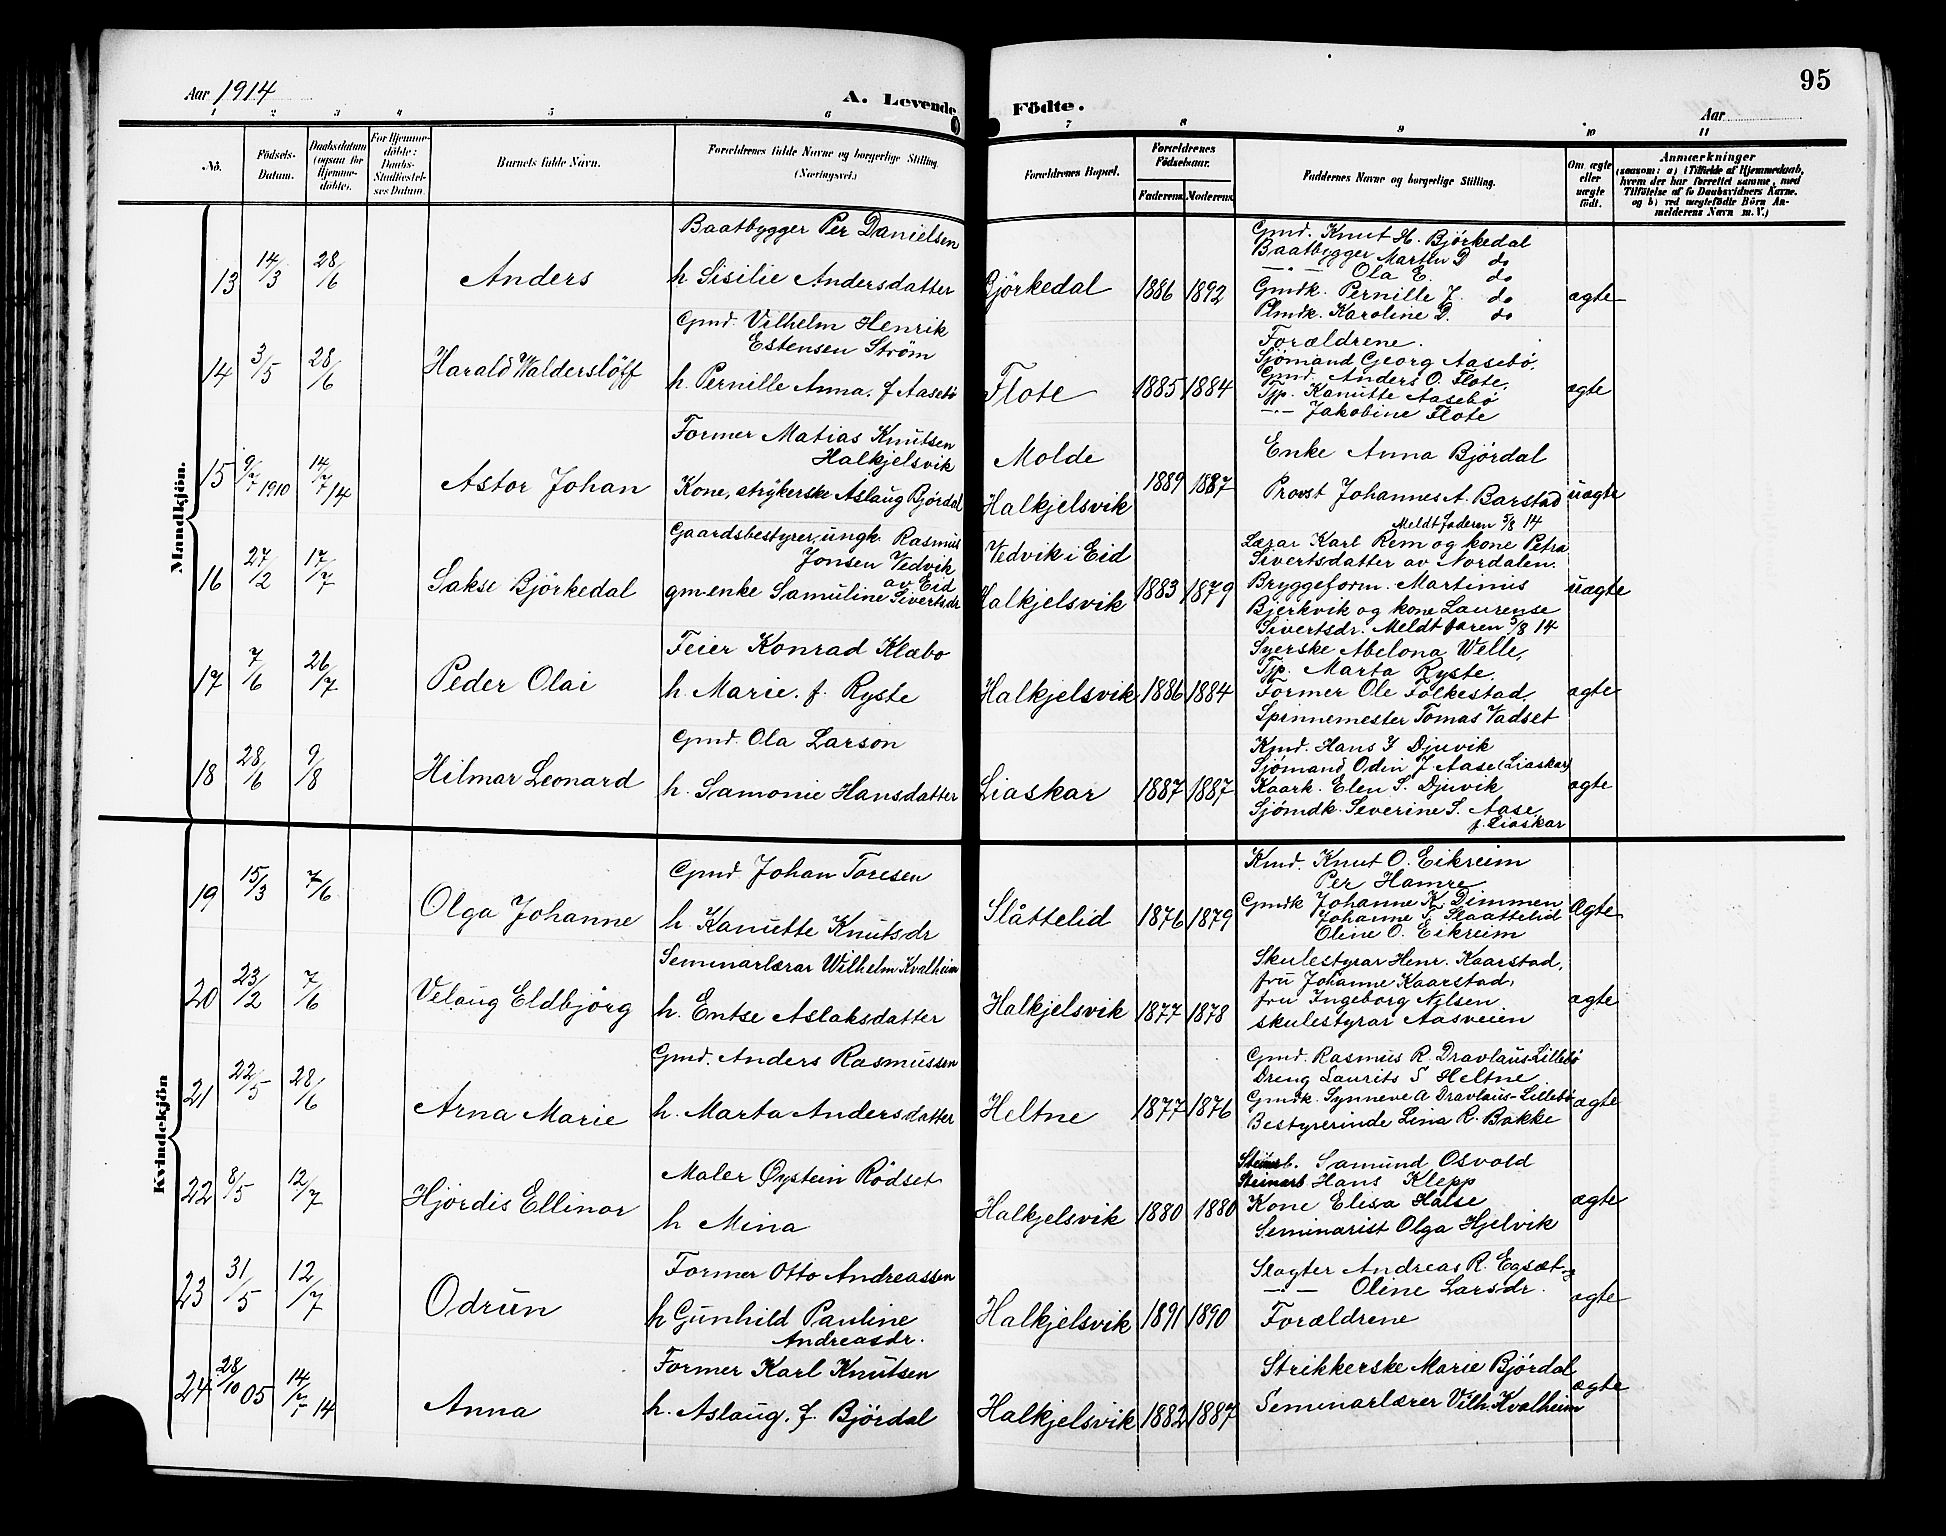 95
Aar 1914
A. Levende Födte.
Aar
1 2 3 4 5 6 7 8 9 10 11
Nô.
Födsels-Datum.
Daabsdatum (ogsaa for Hjemmedöbte).
For Hjemmedöbte: Daabs-Stadfæstelses Datum.
Barnets fulde Navn.
Forældrenes fulde Navne og borgerlige Stilling (Næringsvei.)
Forældrenes Bopæl.
Forældrenes Födselsaar.
Faderens. Moderens.
Faddernes Navne og borgerlige Stilling.
Om ægte eller uægte födt.
Anmærkninger
(saasom: a) i Tilfælde af Hjemmedaab, hvem der har forrettet samme, med Tilföielse af to Daabsvidners Navne, og b) ved uægtefödte Börn Anmelderens Navn m. V.)
Mandkjön.
13 14/3 28/6 Anders
Baatbygger Per Danielsen
h Sisilie Andersdatter
Björkedal 1886 1892
Gmd. Knut H. Björkedal
Baatbygger Martin D do
—"— Ola E. do
Gmdk. Pernille J. do
Plmdk. Karoline D. do
ægte
14 3/5 28/6 Harald Walderslöff
Gmd. Vilhelm Henrik
Estensen Ström
h. Pernille Anna. f Aasebö
Flote 1885 1884
Forældrene.
Sjömand Georg Aasebö.
Gmd. Anders O. Flote.
Tjp. Kanutte Aasebö
—"— Jakobine Flote
ægte
15 9/7 1910 14/7 14 Astor Johan
Former Matias Knutsen
Halkjelsvik
Kone, strykerske Aslaug Björdal
Molde
Halkjelsvik 1889 1887
Enke Anna Bjórdal
Provst Johannes A. Barstad
Meldt faderen 5/8 14
uægte
16 27/2 17/7 Sakse Björkedal
Gaardsbestyrer, ungk. Rasmus
Jonsen Vedvik
av Eid
gm-enke Samuline Sivertsdr
Vedvik i Eid
Halkjelsvik 1883 1879
Lærar Karl Rem og kone Petra
Sivertsdatter av Nordalen.
Bryggeform. Martinus
Bjerkvik og kone Laurense
Sivertsdr. Meldt faren 5/8 14
uægte
17 7/6 26/7 Peder Olai
Feier Konrad Klæbo
h. Marie. f. Ryste
Halkjelsvik 1886 1884
Syerske Abelona Welle,
Tjp. Marta Ryste.
Former Ole Folkestad.
Spinnemester Tomas Vadset
ægte
18 28/6 9/8 Hilmar Leonard
Gmd. Ola Larson
h. Samonie Hansdatter
Liaskar 1887 1887
Kmd. Hans J Djuvik
Sjömand Odin J Aase (Liaskar)
Kaark. Elen S. Djuvik
Sjómdk. Severine S. Aase,
f. Liaskar
ægte
Kvindekjön
19 15/3 7/6 Olga Johanne
Gmd Johan Toresen
h. Kanutte Knutsdr
Slåttelid 1876 1879
Kmd. Knut O. Eikreim
Per Hamre
Gmdk Johanne K. Dimmen
Johanne T. Slaattelid
Oline O. Eikreim
Ægte
20 23/2 7/6 Velaug Eldbjörg
Seminarlærar Wilhelm Kvalheim
h. Entse Aslaksdatter
Halkjelsvik 1877 1878
Skulestyrar Henr. Kaarstad,
fru Johanne Kaarstad,
fru Ingeborg Nilsen
skulestyrar Aasveien
ægte
21 22/5 28/6 Arna Marie
Gmd. Anders Rasmussen
h. Marta Andersdatter
Heltne 1877 1876
Gmd. Rasmus R. Dravlaus-Lillebö
Dreng Laurits S Heltne
Gmdk. Synneve A Dravlaus-Lillebö
Bestyrerinde Lina R. Bakke
ægte
22 8/5 12/7 Hjórdis Ellinor
Maler Øystein Rödset
h Mina
Halkjelsvik 1880 1880
Samund Osvold
Steinarb Hans Klepp
Kone Elisa Halse
Seminarist Olga Hjelvik
ægte
23 31/5 12/7 Odrun
Former Otto Andreassen
h Gunhild Pauline
Andreasdr.
Halkjelsvik 1891 1890
Slagter Andreas R. Egsæt
—"— Oline Larsdr.
Forældrene
ægte
24 28/10 05 14/7 14 Anna
Former Karl Knutsen
h. Aslaug. f. Bjórdal
Halkjelsvik 1882 1887
Strikkerske Marie Bjórdal
Seminarlærer Vilh. Kvalheim
ægte